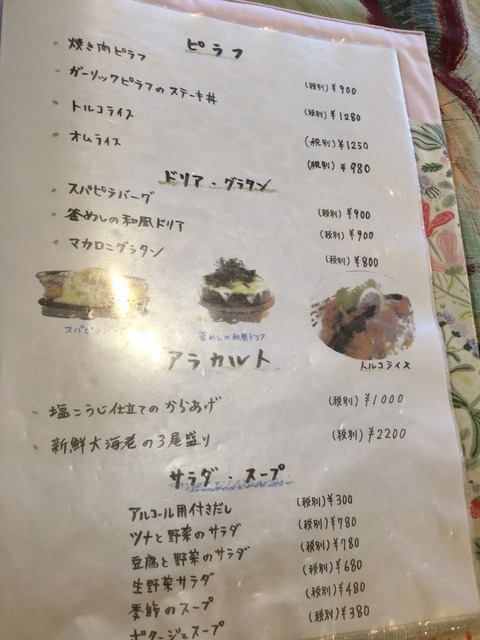 ピラフ
・焼き肉ピラフ (税別) ¥900
・ガーリックピラフのステーキ丼 (税別) ¥1280
・トルコライス (税別) ¥1250
・オムライス (税別) ¥980
ドリア・グラタン
・スパピラバーグ (税別) ¥900
・釜めしの和風ドリア (税別) ¥900
・マカロニグラタン (税別) ¥800
スパピラバーグ
釜めしの和風ドリア
トルコライス
アラカルト
・塩こうじ仕立てのからあげ (税別) ¥1000
・新鮮大海老の3尾盛り (税別) ¥2200
サラダ・スープ
アルコール用付きだし (税別) ¥300
ツナと野菜のサラダ (税別) ¥780
豆腐と野菜のサラダ (税別) ¥780
生野菜サラダ (税別) ¥680
季節のスープ (税別) ¥480
ポタージュスープ (税別) ¥380